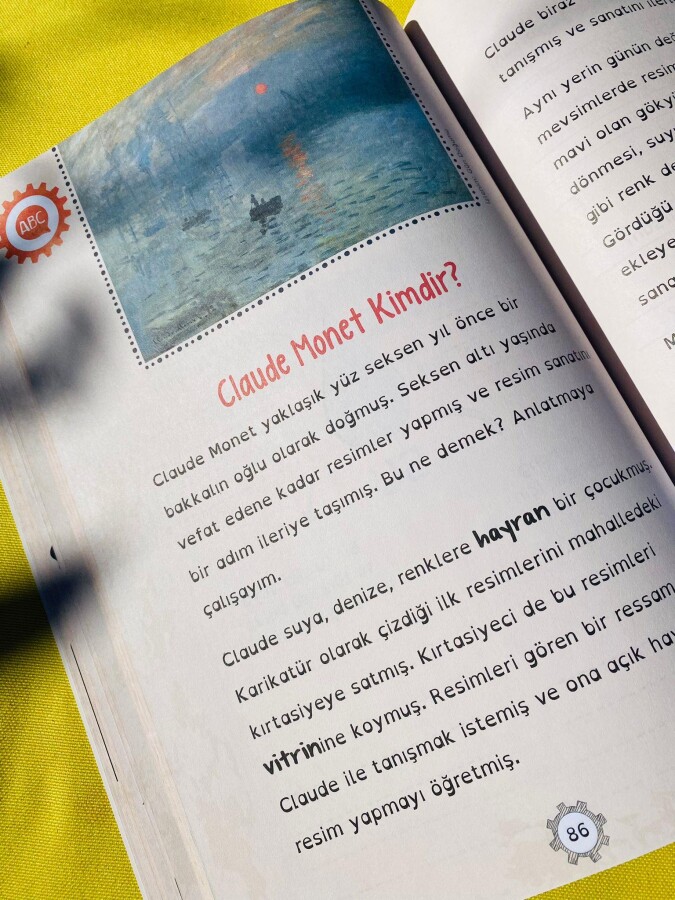 ABC
Claude Monet Kimdir?
Claude Monet yaklaşık yüz seksen yıl önce bir
bakkalın oğlu olarak doğmuş. Seksen altı yaşında
vefat edene kadar resimler yapmış ve resim sanatını
bir adım ileriye taşımış. Bu ne demek? Anlatmaya
çalışayım.
Claude suya, denize, renklere hayran bir çocukmuş.
Karikatür olarak çizdiği ilk resimlerini mahalledeki
kırtasiyeye satmış. Kırtasiyeci de bu resimleri
vitrinine koymuş. Resimleri gören bir ressam
Claude ile tanışmak istemiş ve ona açık
resim yapmayı öğretmiş.
86
Claude biraz
tanışmış ve sanatını
Aynı yerin günün
mevsimlerde
mavi olan
dönmesi,
gibi renk
Gördüğü